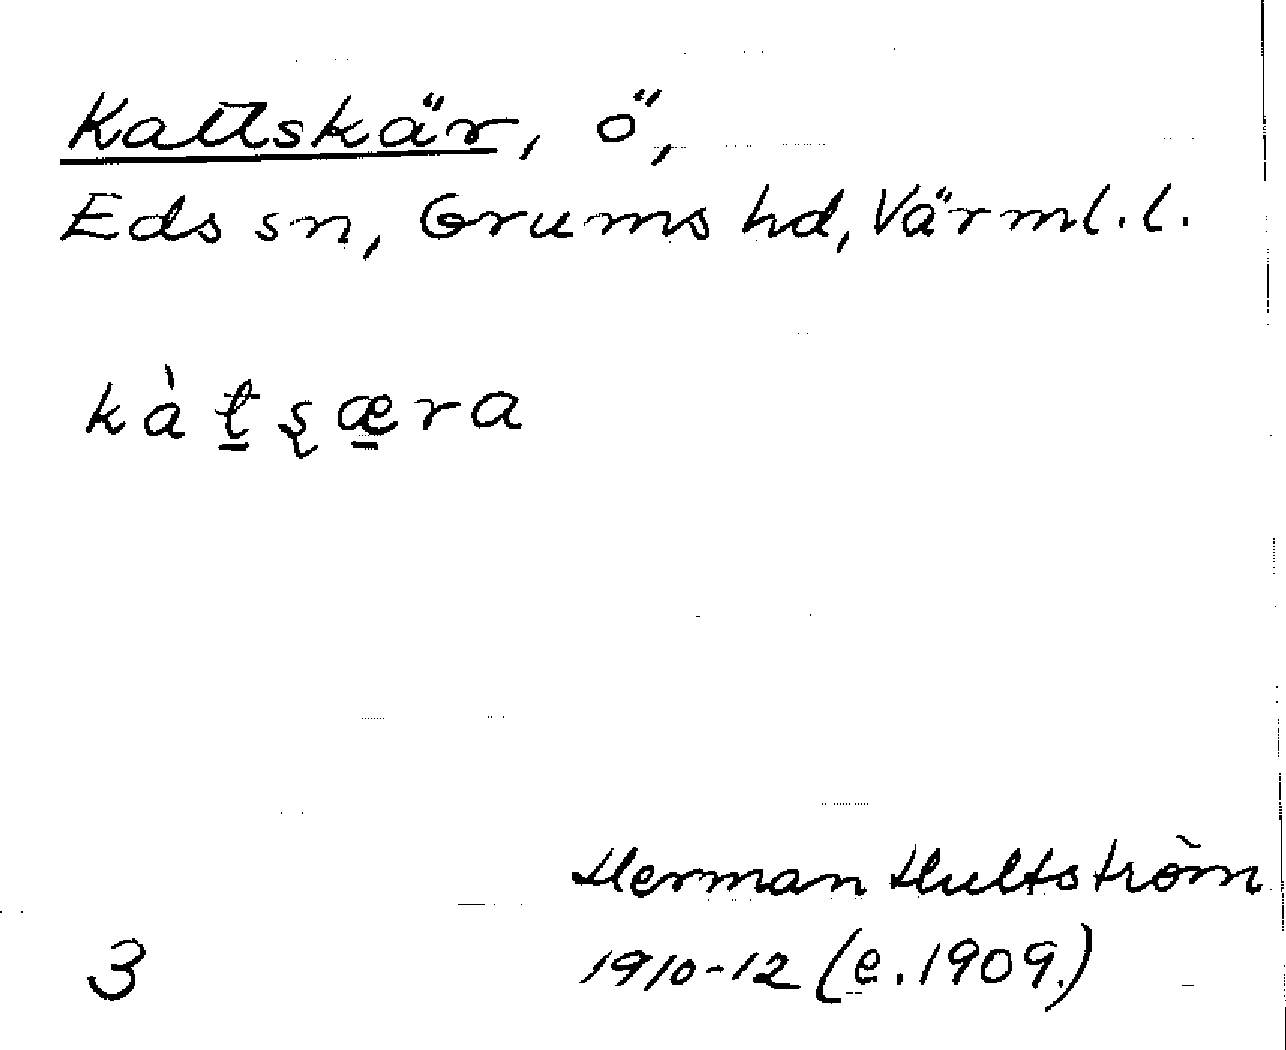 Kattskär, ö,
Eds sn, Grums hd, Värml. l.
kàt̠ʂæ̠ra
Herman Hultström
3 1910-12 (e. 1909.)